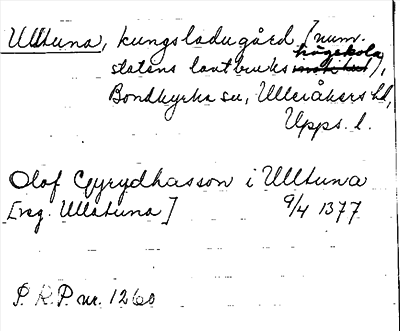 Ulltuna, kungsladugård [num.
högskola
statens lantbruks institut),
Bondkyrka sn, Ulleråkers hd,
Upps. l.
Olof Gyrydhasson i Ulltuna
[reg. Ullatuna] 9/4 1377
P. R. P. nr. 1260